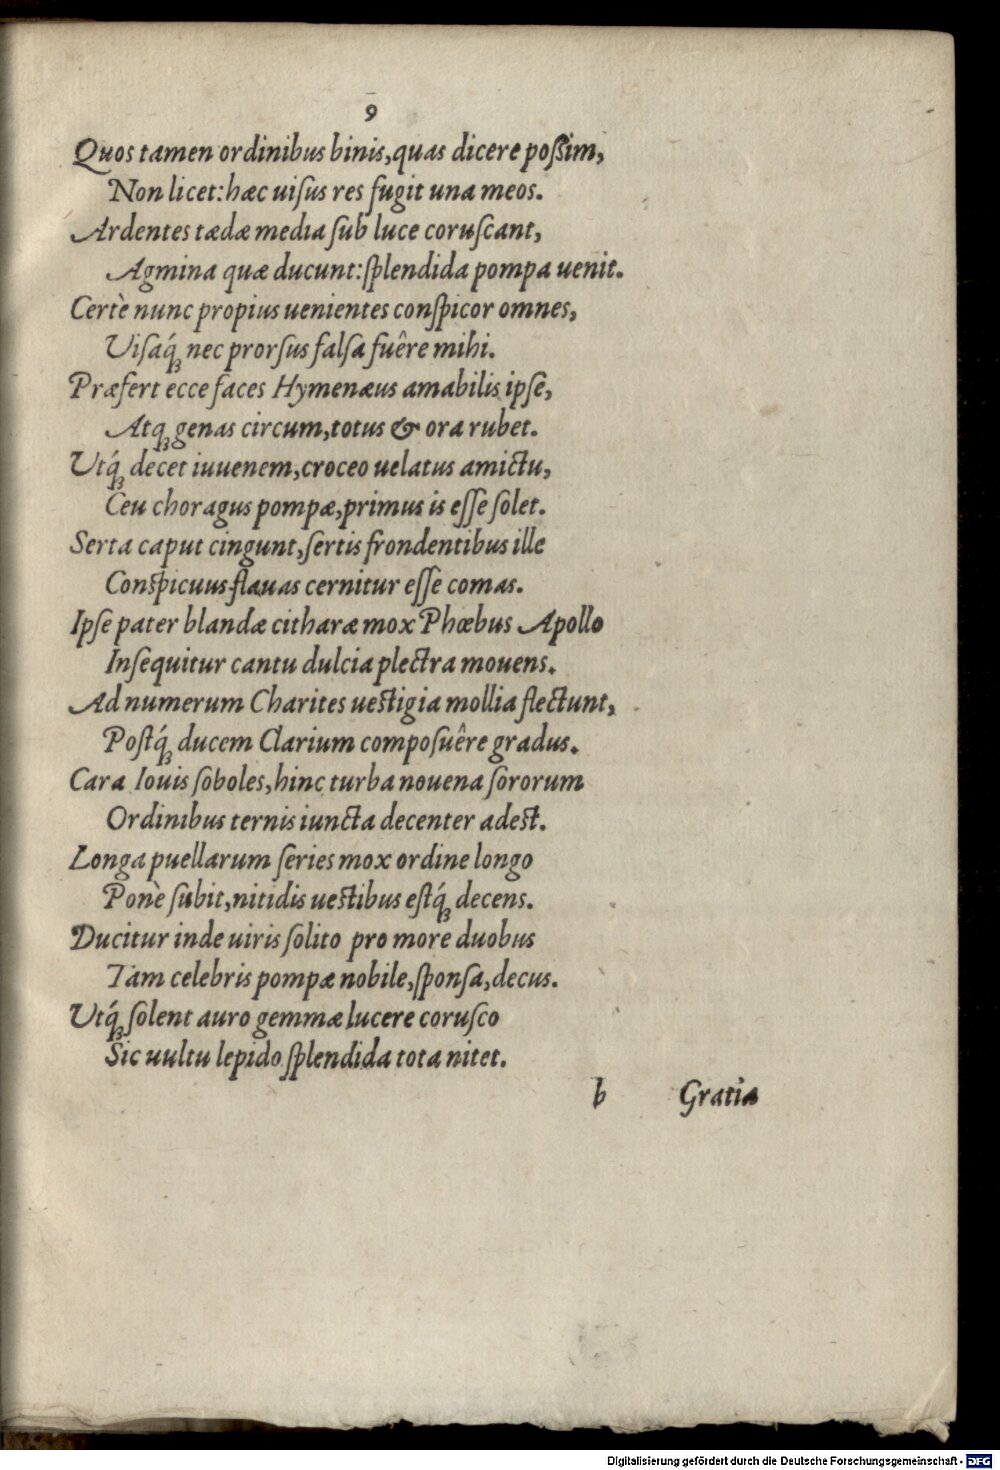 9
Quos tamen ordinibus binis, quas dicere poßim,
Non licet: hæc uiſus res fugit una meos.
Ardentes tædæ media ſub luce coruſcant,
Agmina quæ ducunt: ſplendida pompa uenit.
Certè nunc propius uenientes conſpicor omnes,
Uiſaq́ꝫ nec prorſus falſa fuêre mihi.
Præfert ecce faces Hymenæus amabilis ipſe,
Atqꝫ genas circum, totus & ora rubet.
Utq́ꝫ decet iuuenem, croceo uelatus amictu,
Ceu choragus pompæ, primus is eſſe ſolet.
Serta caput cingunt, ſertis frondentibus ille
Conſpicuus flauas cernitur eſſe comas.
Ipſe pater blandæ citharæ mox Phœbus Apollo
Inſequitur cantu dulcia plectra mouens.
Ad numerum Charites ueſtigia mollia flectunt,
Poſtq́ꝫ ducem Clarium compoſuêre gradus.
Cara Iouis ſoboles, hinc turba nouena ſororum
Ordinibus ternis iuncta decenter adeſt.
Longa puellarum ſeries mox ordine longo
Ponè ſubit, nitidis ueſtibus eſtq́ꝫ decens.
Ducitur inde uiris ſolito pro more duobus
Tam celebris pompæ nobile, ſponſa, decus.
Utq́ꝫ ſolent auro gemmæ lucere coruſco
Sic uultu lepido ſplendida tota nitet.
b Gratia
Digitalisierung gefördert durch die Deutsche Forschungsgemeinschaft - DFG